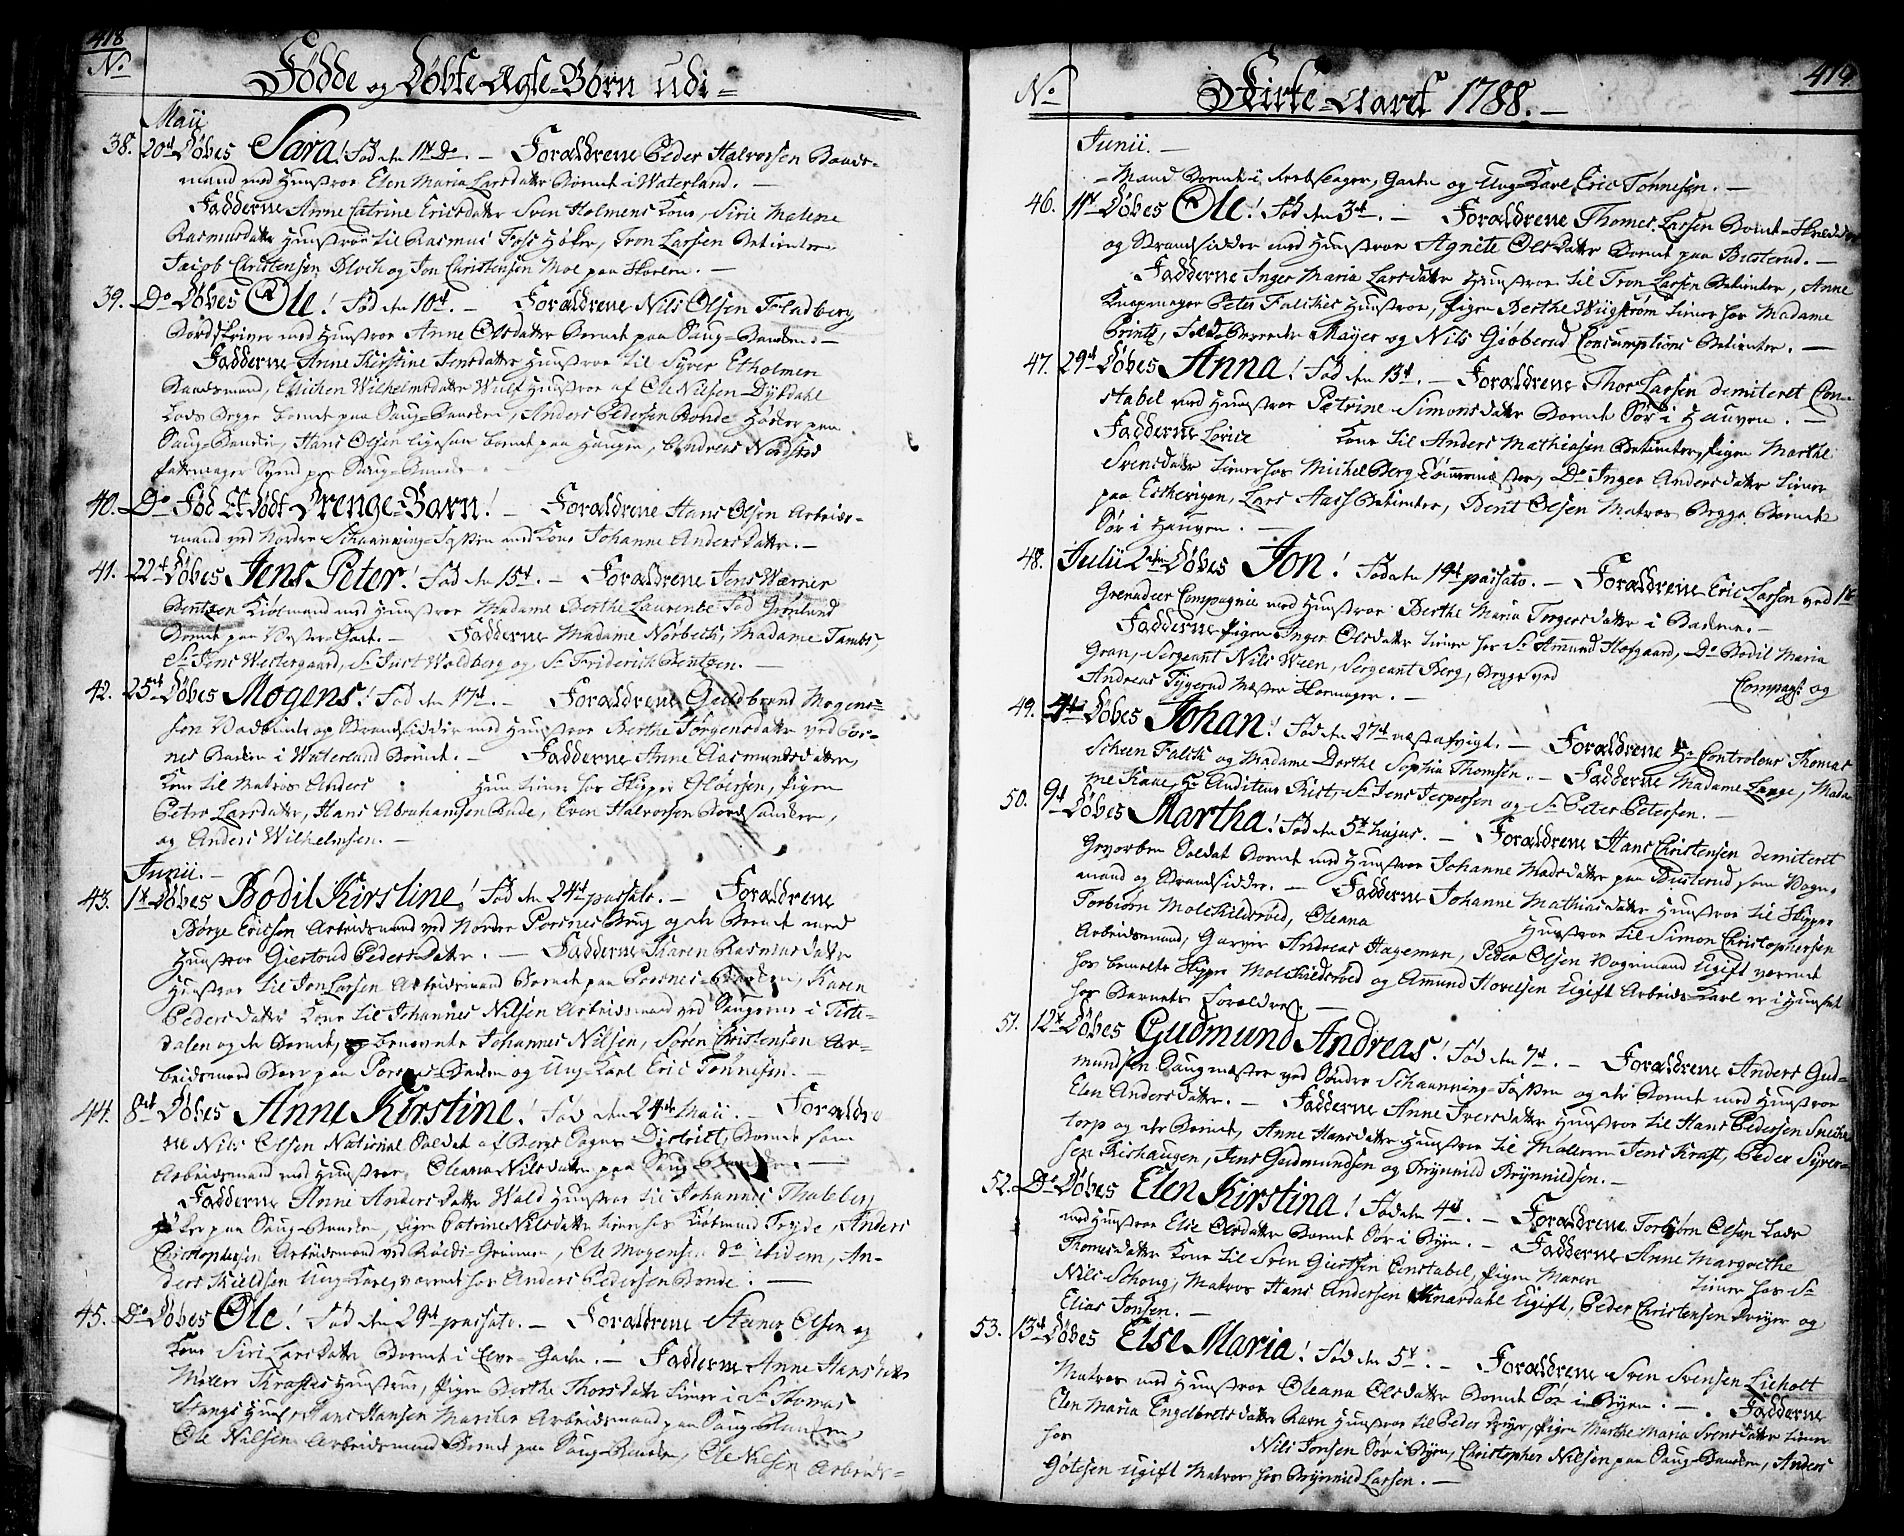 418
No
Födde og Döbte Ægte-Børn udi=
Maii
38. 20de Döbes Sara! Fød den 11te Do. — Forældrene Peder Halvorsen Baads-
mand med Hustroe Elen Maria Larsdatter Boende i Waterland. —
Fadderne Anne Catrine Ericsdatter Sven Holmens Kone, Sirie Malene
Rasmusdatter Hustroe til Rasmus Foss Høker, Tron Larsen Betienter
Jacob Christensen Bloch og Jon Christensen Moe paa Skolen. —
39. Do Döbes Ole! Fød den 10de. — Forældrene Nils Olsen Fladberg
Bordskriver med Hustroe Anne Olsdatter Boende paa Saug-Banden. —
Fadderne Anne Kirstine Jensdatter Hustroe til Syver Etholmen
Baadsmand, Wilhelmsdatter Wulf Hustroe af Ole Nilsen Dybdahl
Lods Begge Boende paa Saug-Banden, Anders Pedersen Bonde Høker paa
Saug-Banden, Hans Olsen ligesaa boende paa Haugen, Andreas Nordsted
paa Saug-Banden.
40. Do Fød Et Dødt Drenge-Barn! — Forældrene Hans Olsen Arbeids-
mand ved Nordre Schaanning-Fossen med Kone Johanne Andersdatter. —
41. 22de Döbes Jens Peter! Fød den 15de. — Forældrene Jens Wærner
Bentzen Kiøbmand med Hustroe Madame Berthe Laurentse Fød Grønlund
Boende paa Wester. — Fadderne Madame Norbech, Madame Tambs,
Sr Jens Westergaard, Sr Just Woldberg og Sr Friderich Bentzen. —
42. 25de Döbes Mogens! Fød den 17de. — Forældrene Guldbrand Mogens-
sen Vadbinder og Strandsidder med Hustroe Berthe Jørgensdatter ved Por-
nes Banden i Waterland Boende. — Fadderne Anne Aasmundsdatter,
Kone til Matros Anders hun tiener hos Skipper Fløersen, Pigen
Petro Larsdatter, Hans Abrahamsen Bude, Even Halvorsen Bordsander,
og Anders Wilhelmsen. —
Junii. —
43. 1te Döbes Bodil Kirstine! Fød den 24de passato. — Forældrene
Børge Ericsen Arbeidsmand ved Nordre Porsnes Brug og der Boende med
Hustroe Giertrud Pedersdatter. — Fadderne Karen Rasmusdatter
Hustroe til Jon Larsen Arbeidsmand Boende paa Porsnes-Banden, Karen
Pedersdatter Kone til Johannes Nilsen Arbeidsmand ved Saugerne i Tiste-
dalen og der Boende, og benevnte Johannes Nilsen, Søren Christensen Ar-
beidsmand Boer paa Porsnes-Banden og Ung-Karl Eric Tønnesen. —
44. 8de Döbes Anne Kirstine! Fød den 24de Maii. — Forældre
ne Nils Olsen National Soldat af Bergs Sogns District, Boende som
Arbeidsmand med Hustroe Oleana Nilsdatter paa Saug-Banden. —
Fadderne Anne Andersdatter Wold Hustroe til Johannes Thabberg
paa Saug-Banden, Pigen Catrine Nilsdatter tiener hos Kiøbmand Tryde, Anders
Christophersen Arbeidsmand ved Røeds-Grinnen, Ole Mogensen do ibidem, An-
ders Kieldsen Ung-Karl, værende hos Anders Pedersen Bonde. —
45. Do Döbes Ole! Fød den 29de passato. — Forældrene Steiner Olsen og
Kone Siri Larsdatter Boende i Elve-Gaden. — Fadderne Anne Hansdatter
Møller Krafts Hustrue, Pigen Berthe Thorsdatter tiener i Sr Thomas
Stangs Huus, Hans Hansen Mariker Arbeidsmand paa Saug-Banden,
Ole Nilsen Arbeidsmand Boende paa Saug-Banden, Ole Nilsen Arbeids=
419
No
Kirke-Aaret 1788. —
Junii. —
=Mand Boende i Reebslager, Gaden og Ung-Karl Eric Tønnesen. —
46. 11te Döbes Ole! Fød den 3de. — Forældrene Thomes Larsen Boende
og Strandsidder med Hustroe Agnite Olsdatter Boende paa Busterud. —
Fadderne Inger Maria Larsdatter Hustroe til Tron Larsen Betienter, Anne
Knapmager Peter Falches Hustroe, Pigen Berthe Wugstrøm tiener hos Madame
Printz, Feldtberedter Mayer og Nils Giøberud Consumptions Betienter. —
47. 29de Döbes Anna! Fød den 13de. — Forældrene Thor Larsen demiteret Con-
stabel med Hustroe Petrine Simonsdatter Boende Sør i Hauven. —
Fadderne Lovise Kone til Anders Mathiesen Betienter, Pigen Marthe
Svensdatter tiener hos Michel Berg Tømmermester, Do Inger Andersdatter tiener
paa Estherigen, Lars Aass Betienter, Bent Olsen Matros Begge Boende
Sør i Hauven. —
48. Julii 2den Döbes Jon! Fød den 19de passato. — Forældrene Eric Larsen ved 1te
Grenadeer Compagnie med Hustroe Berthe Maria Torgersdatter i Bakkene. —
Fadderne Pigen Inger Olsdatter tiener hos Sr Amund Hofgaard, Do Bodil Maria
Gran, Sergeant Nils Ween, Sergeant Berg, Begge ved Compagt og
Andreas Tygerud Mæster Skomager. —
49. 4de Döbes Johan! Fød den 27de næstafvigt. — Forældrene Hr Controleur Thomas
Scheen Falch og Madame Dorthe Sophia Thomsen. — Fadderne Madame Lange, Mada-
me Kaae, Hr Auditeur Rist, Sr Jens Jespersen og Sr Peter Petersen. —
50. 9de Döbes Martha! Fød den 5te hujus. — Forældrene Hans Christensen demiteret
Gevorben Soldat Boende med Hustroe Johanne Madsdatter paa Busterud som Vogn-
mand og Strandsidder. — Fadderne Johanne Mathiasdatter Hustroe til Skipper
Torbiørn Molchildrød, Oleana Hustroe til Simon Christophersen
Arbeidsmand, Garver Andreas Hageman, Peder Olsen Vognmand Ugift værende
hos bemelte Skipper Molchildrød og Amund Hovelsen Ugift Arbeids-Karl er i Huuset
hos Barnets Forældre. —
51. 12te Döbes Gudmund Andreas! Fød den 7de. — Forældrene Anders Gud-
mundsen Saugmæster ved Søndre Schaanning-Fossen og der Boende med Hustroe
Elen Andersdatter. — Fadderne Anne Iversdatter Hustroe til Hans Pedersen Snecker
torp og der Boende, Anne Hansdatter Hustroe til Møllern Jens Kraft, Peder Syver-
sen Rishaugen, Jens Gudmundsen og Brynnild Brynnildsen. —
52. Do Döbes Elen Kirstina! Fød den 4de. — Forældrene Torbjørn Olsen Lods
med Hustroe Else Olsdatter Boende Sør i Byen. — Fadderne Anne Margrethe
Thomesdatter Kone til Sven Giertsen Constabel, Pigen Maren tiener hos Sr
Nils Schoug, Matros Hans Andersen Knardahl Ugift, Peder Christensen Dreyer og
Elias Jonsen. —
53. 13de Döbes Else Maria! Fød den 5te. — Forældrene Sven Svensen Lieholt
Matros med Hustroe Oleana Olsdatter Boende Sør i Byen. — Fadderne
Elen Maria Engelbretsdatter Ravn Hustroe til Peder Dreyer, Pigen Marthe Maria Svensdatter tiener
hos Nils Jonsen Sør i Byen, Christopher Nilsen paa Saug-Banden, Anders
Gøtesen Ugift Matros hos Brynnild Larsen. —